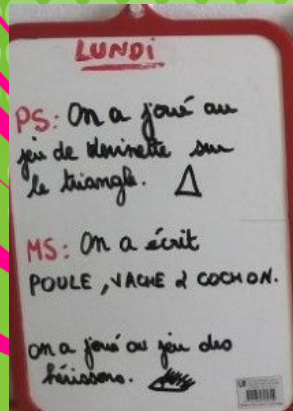 LUNDI
PS: On a joué au
jeu de devinette sur
le triangle.
MS: On a écrit
POULE, VACHE & COCHON.
on a joué au jeu des
hérissons.